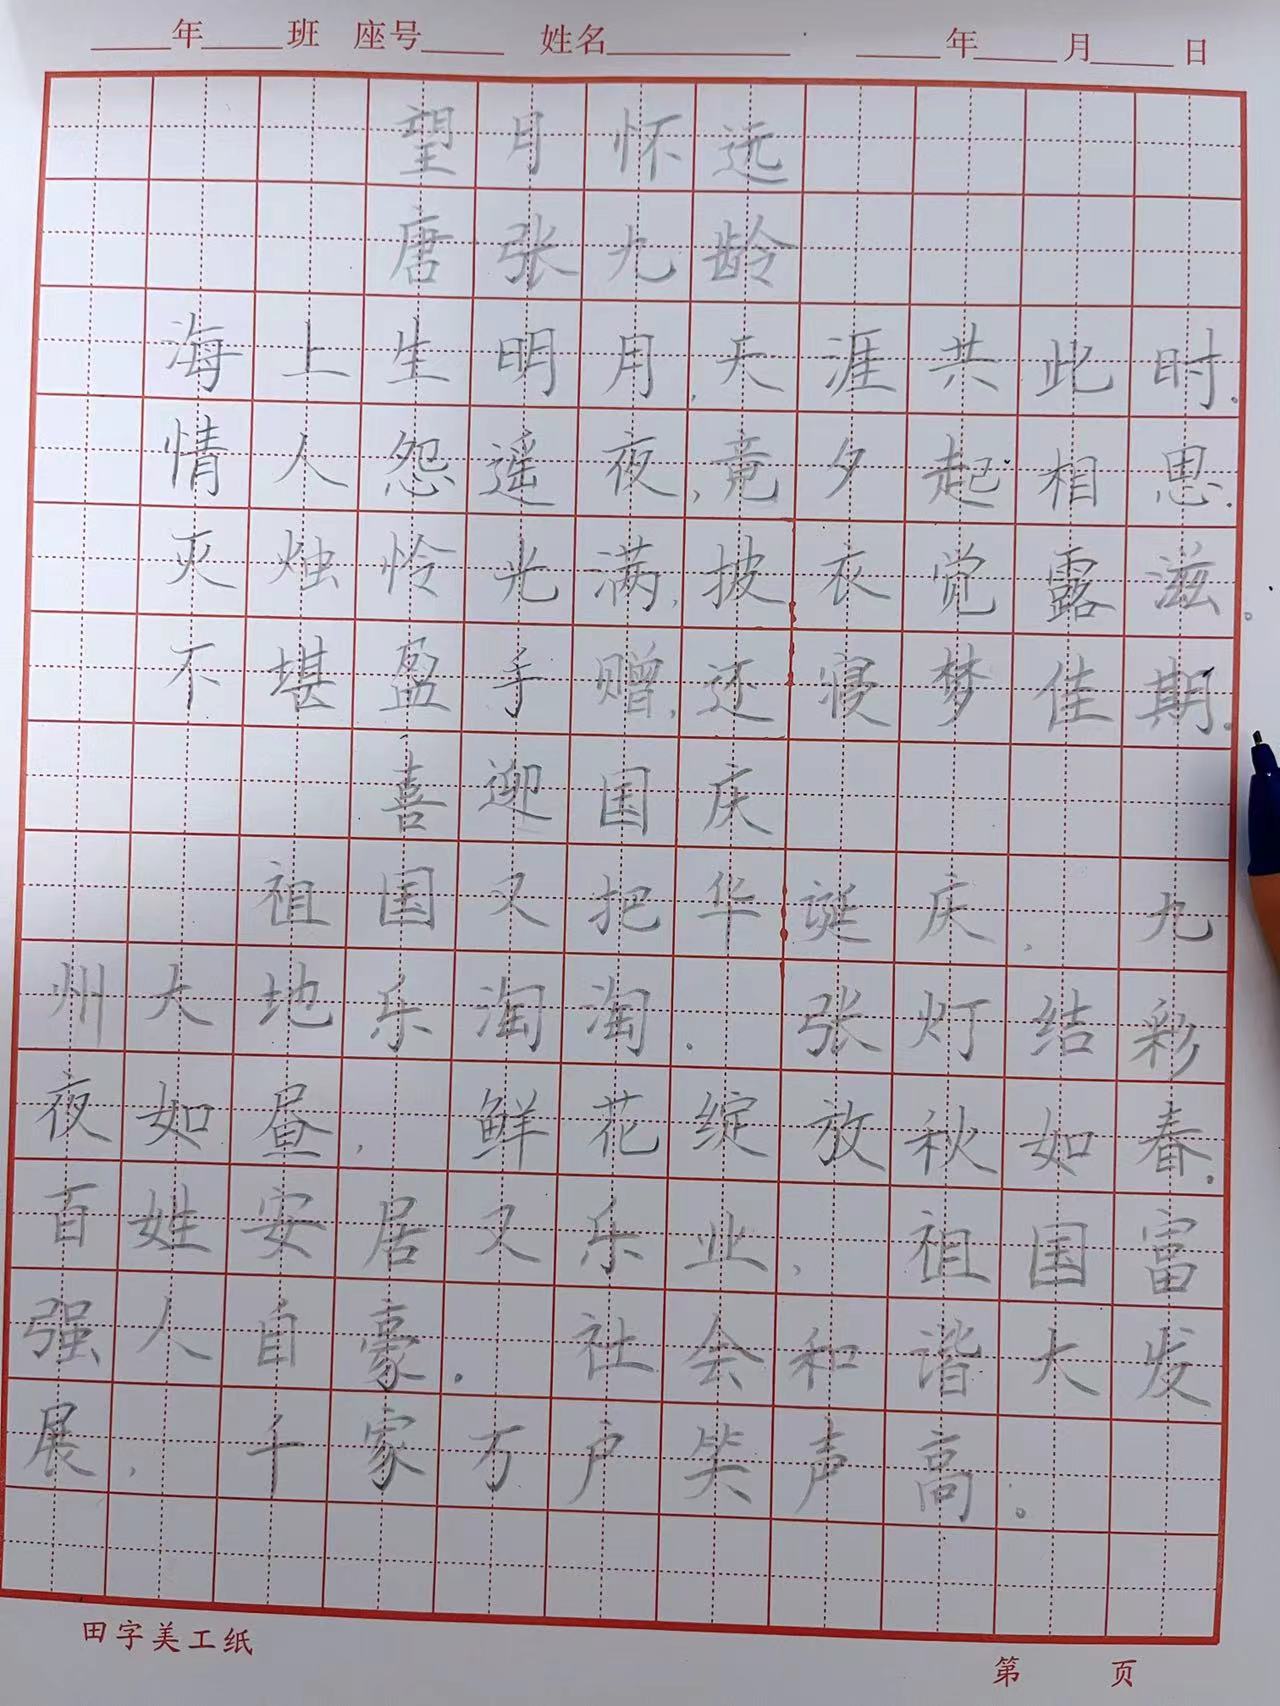 年 班 座号 姓名 年 月 日
望月怀远
唐张九龄
海上生明月,天涯共此时.
情人怨遥夜,竟夕起相思.
灭烛怜光满,披衣觉露滋。
不堪盈手赠,还寝梦佳期.
喜迎国庆
祖国又把华诞庆, 九
州大地乐淘淘. 张灯结彩
夜如昼, 鲜花绽放秋如春.
百姓安居又乐业, 祖国富
强人自豪. 社会和谐大发
展, 千家万户笑声高。
田字美工纸
第 页